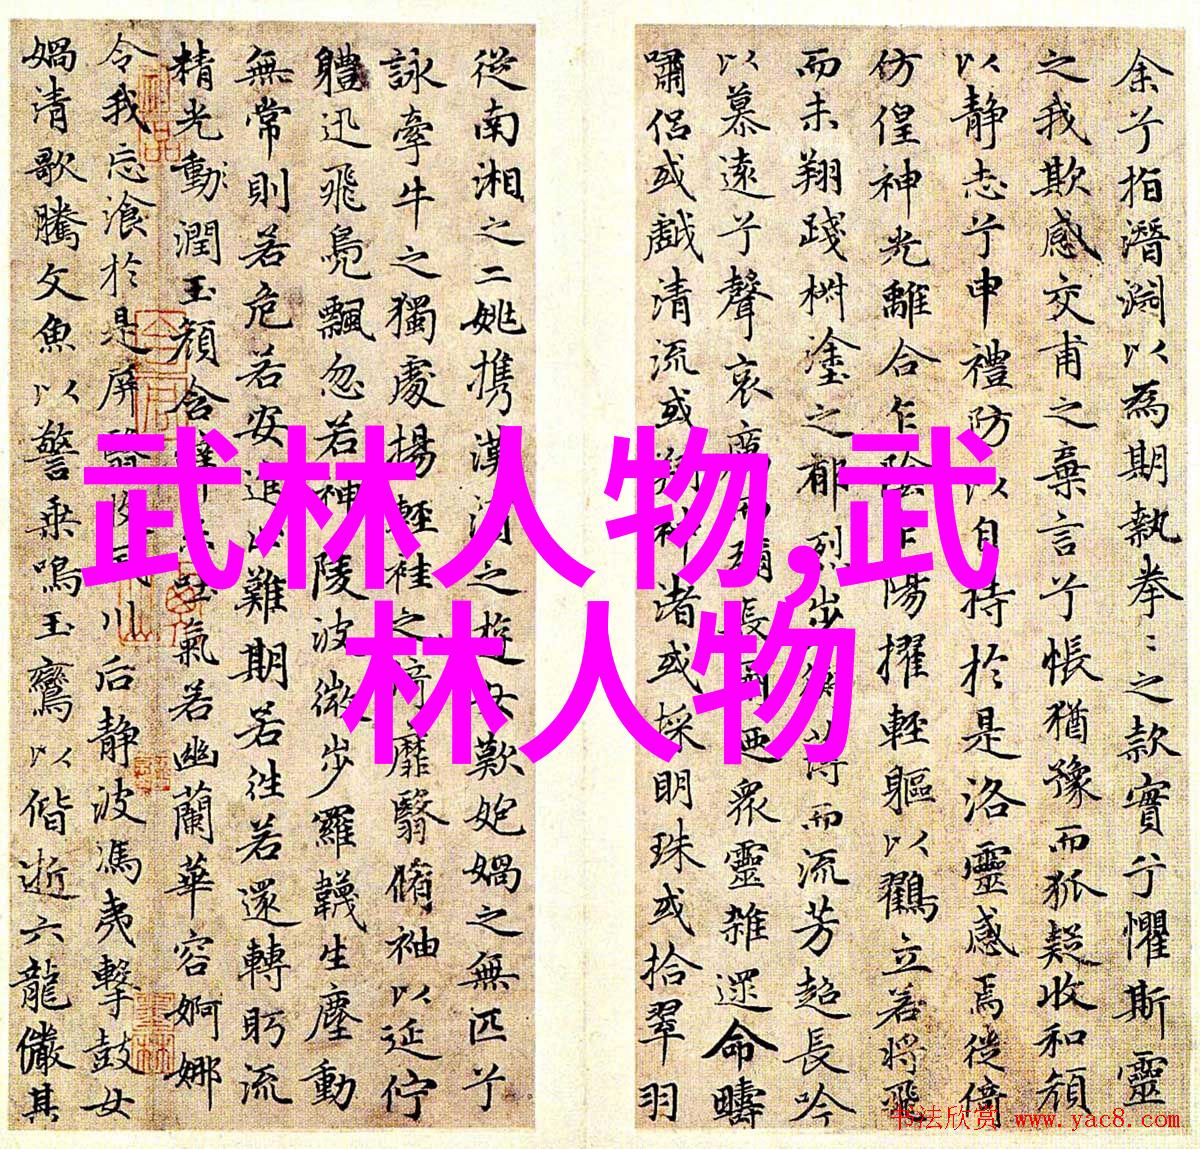 余兮指潛淵以為期執拳〻之款實兮懼斯靈
之我欺感交甫之棄言兮悵猶豫而狐疑收和顏
以静志兮申禮防以自持於是洛靈感焉徙倚
仿偟神光離合乍陰乍陽擢輕軀以鶴立若將飛
而未翔踐椒塗之郁列步蘅薄而流芳超長吟
以慕遠兮聲哀厲而彌長爾迺衆靈雜遝命疇
嘯侶或戲清流或翔神渚或採明珠或拾翠羽
從南湘之二姚攜漢濱之遊女歎匏媧之無匹兮
詠牽牛之獨處揚輕袿之猗靡翳脩袖以延佇
體迅飛鳧飄忽若神陵波微步羅韈生塵動
無常則若危若安進止難期若往若還轉眄流
精光動潤玉顏含辭未吐氣若幽蘭華容婀娜
令我忘飡於是屏翳收風川后静波馮夷擊鼓女
媧清歌騰文魚以警乘鳴玉鸞以偕逝六龍儼其
武林人物,武
林人物
书法欣赏 www.yac8.com